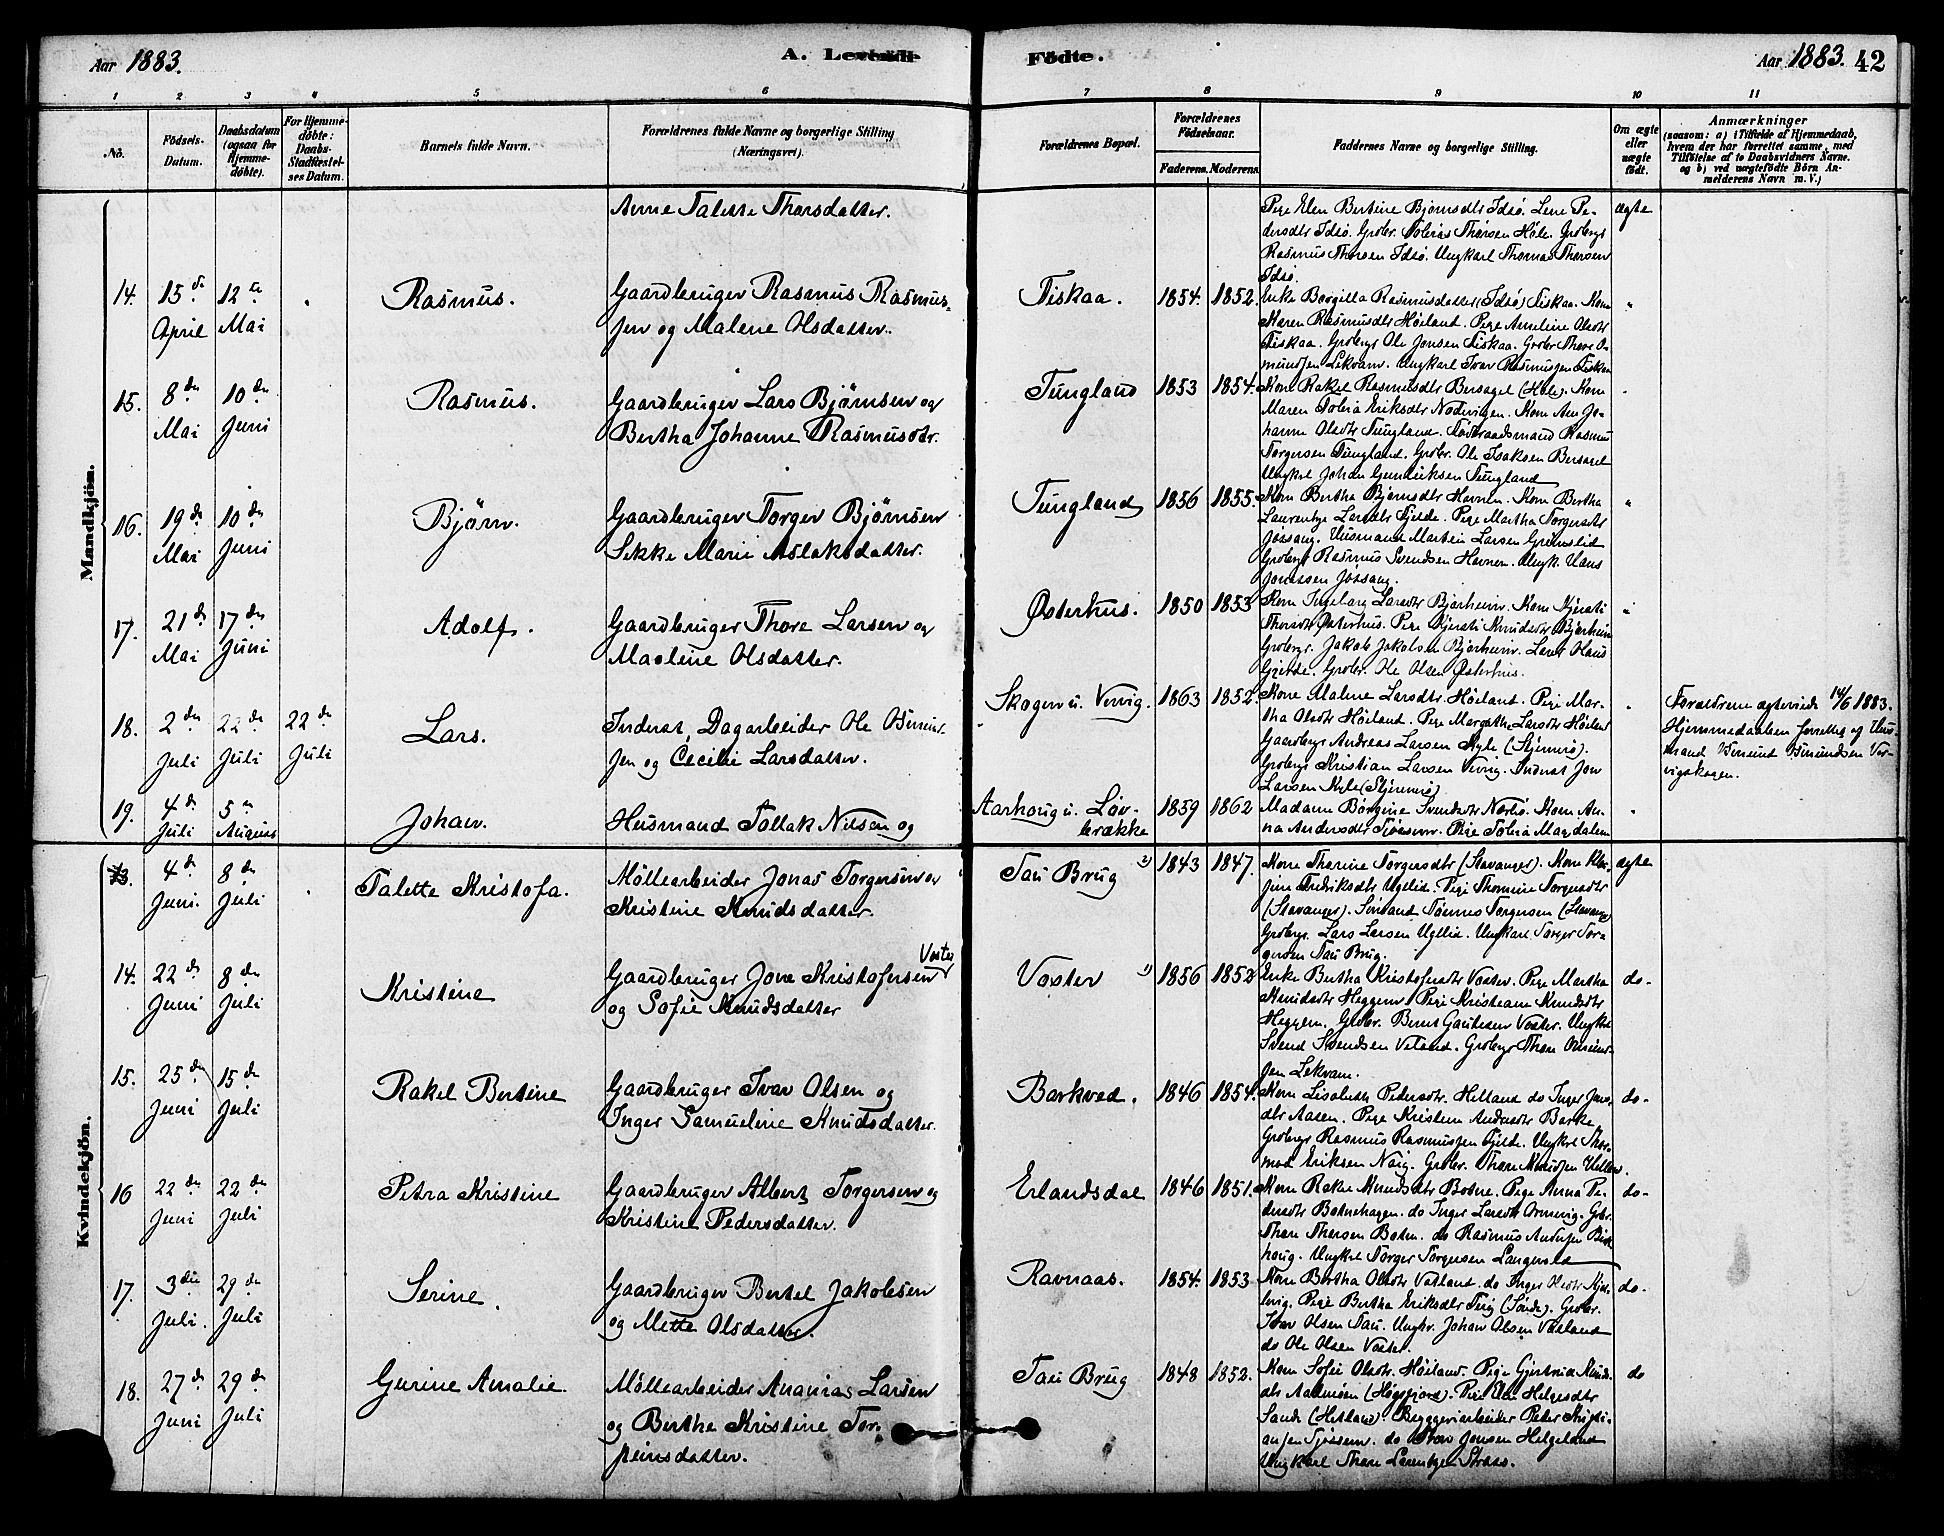 Aar 1883.
A. Levende Fødte.
Aar 1883. 42
1 2 3 4 5 6 7 8 9 10 11
No.
Fødsels-
Datum.
Daabsdatum
(ogsaa for
Hjemme-
døbte).
For Hjemme-
døbte:
Daabs-
Stadfæstel-
ses Datum.
Barnets fulde Navn.
Forældrenes fulde Navne og borgerlige Stilling
(Næringsvei).
Forældrenes Bopæl.
Forældrenes
Fødselsaar.
Faderens. Moderens.
Faddernes Navne og borgerlige Stilling.
Om ægte
eller
uægte
født.
Anmærkninger
(saasom: a) i Tilfælde af Hjemmedaab,
hvem der har forrettet samme, med
Tilføielse af to Daabsvidners Navne.
og b) ved uægtefødte Børn An-
melderens Navn m. V.)
Mandkjøn.
Anne Talette Thorsdatter.
Pige Elen Bertine Bjørnsdtr Idsø. Lene Pe-
dersdtr Idsø. Grdbr. Tobias Thorsen Hole. Grdbrgr
Rasmus Thorsen Idsø. Ungkarl Thomas Thorsen
Idsø.
ægte
14. 15de April 12te Mai
Rasmus.
Gaardbruger Rasmus Rasmus-
sen og Malene Olsdatter.
Fiskaa. 1854. 1852.
Enke Borgilla Rasmusdatter (Idsø) Fiskaa. Kone
Maren Rasmusdtr Høiland. Pige Anneline Olsdtr
Fiskaa. Grdbrgr Ole Jonsen Fiskaa. Grdbr Thore O-
mundsen Lekvam. Ungkarl Ivar Rasmussen Fiskaa
15. 8de Mai 10de Juni
Rasmus.
Gaardbruger Lars Bjørnsen og
Bertha Johanne Rasmusdtr.
Tungland 1853 1854.
Kone Rakel Rasmusdtr Bersagel (Hole). Kone
Maren Tobia Eriksdtr Nødvigen. Kone Ane Jo-
hanne Olsdtr Tungland. Rasmus
Torgersen Tungland. Grdbr. Ole Isaksen Bersagel
Ungkrl Johan Gundriksen Tungland
16. 19de Mai 10de Juni
Bjørn.
Gaardbruger Torger Bjørnsen
Sekke Marie Aslaksdatter.
Tungland 1856 1855.
Kone Bertha Bjørnsdtr Havnen. Kone Bertha
Laurentze Larsdtr Fjelde. Pige Martha Torgersdtr
Jøssang. Husmand Martin Larsen Grønslid
Grdbrgr Rasmus Svendsen Havnen. Ungk. Hans
Jonassen Jøssang.
17. 21de Mai 17de Juni
Adolf.
Gaardbruger Thore Larsen og
Maolene Olsdatter.
Østerhus. 1850 1853
Kone Ingeborg Larsdtr Bjørheim. Kone Kjersti
Thorsdtr Østerhus. Pige Kjersti Knudsdtr Bjørheim
Grdbrgr. Jakob Jakobsen Bjørheim. Hans
Grdbr. Ole Olsen Østerhus.
18. 2den Juli 22de Juli 22de Juli
Lars.
Inderst, Dagarbeider Ole Osmund-
sen og Cecilie Larsdatter.
Skogen u. Vervig. 1863 1852.
Kone Malene Larsdtr. Høiland. Pige Mar-
tha Olsdtr Høiland. Pige Margothe Larsdtr Høiland
Gaardbrgr Andreas Larsen Kyle (Stjernrø).
Grdbrgr Kristian Larsen Vervig. Inderst Jon
Larsen Kyle (Stjernrø)
Forældrene ægteviede 14/6 1883.
Hjemmedaaben forrettet af Hus-
mand Osmund Osmundsen Ver-
vigskogen.
19. 4de Juli 5te August
Johan.
Husmand Tollak Nilsen og
Aarhoug u. Løv-
brække 1859 1862
Madame Børgine Svendsdtr Norbø. Kone An-
na Andersdtr Tjøssem. Pige Tobia Magdalene
Kvindekjøn.
13. 4de Juni. 8de Juli
Talette Kristofa.
Møllearbeider Jonas Torgersen og
Kristine Knudsdatter
Tau Brug 2) 1843 1847.
Kone Thorine Torgersdtr (Stavanger). Kone
Fredriksdtr Uglid. Pige Thomine Torgersdtr
(Stavanger). Tønnes Torgersen (Stavanger)
Grdbrgr. Lars Larsen Uglid. Ungkarl Torger Tor-
gersen Tau Brug.
ægte
14. 22de Juni 8de Juli
Kristine
Gaardbruger Jone Kristofersen Voster
og Sofie Knudsdatter
Voster 1) 1856 1852
Enke Bertha Kristofersdtr Voster. Pige Martha
Knudsdtr Heggem. Pige Kristiane Knudsdtr
Heggem. Grdbr. Bernt Gautesen Voster. Ungkrl
Svend Svendsen Veland. Grdbrgr Thore Osmund-
sen Lekvam.
do.
15. 25de Juni 15de Juli
Rakel Bertine
Gaardbruger Ivar Olsen og
Inger Samueline Knudsdatter.
Barkved. 1846 1854.
Kone Liselutte Pedersdtr. Helland do Inger Jons-
dtr Aasen. Pige Kristine Andersdtr Barke
Grdbrgr Rasmus Rasmussen Fjelde. Ungkrl Thor-
mod Eriksen Naig. Grdbr. Thore Knudsen Helland.
do.
16 22de Juni 22de Juli
Petra Kristine
Gaardbruger Albert Torgersen og
Kristine Pedersdatter.
Erlandsdal 1846 1851.
Kone Rakel Knudsdtr Botne. Pige Anna Pe-
dersdtr Botnehagen. do Inger Larsdtr Ormevig. Grbr.
Thore Thorsen Botne. do Rasmus Andersen Birk-
houg. Ungkrl Torger Torgersen Langeveld
do.
17. 3die Juli. 29de Juli
Serine.
Gaardbruger Bertel Jakobsen
og Mette Olsdatter.
Ravnaas. 1854. 1853
Kone Bertha Olsdtr Vatland. do Inger Olsdtr
Pige Bertha Eriksdtr (Sande). Grdbr.
Ivar Olsen Tau. Ungkr. Johan Olsen Vatland
do Ole Olsen Voster.
do.
18. 27de Juni 29de Juli
Gurine Amalie.
Møllearbeider Ananias Larsen
og Berthe Kristine Tor-
steinsdatter.
Tau Brug 1848 1852.
Kone Sofie Olsdtr. Høiland. Pige Gjertruda Knuds-
dtr Aadnesen (Høgsfjord). Pige Elen Helgesdtr
Sande (Hetland). Byggeriarbeider Peter Kristi-
ansen Tjøssem. do Ivar Jonsen Helgeland
Ungkarl Thore Larentzen
do